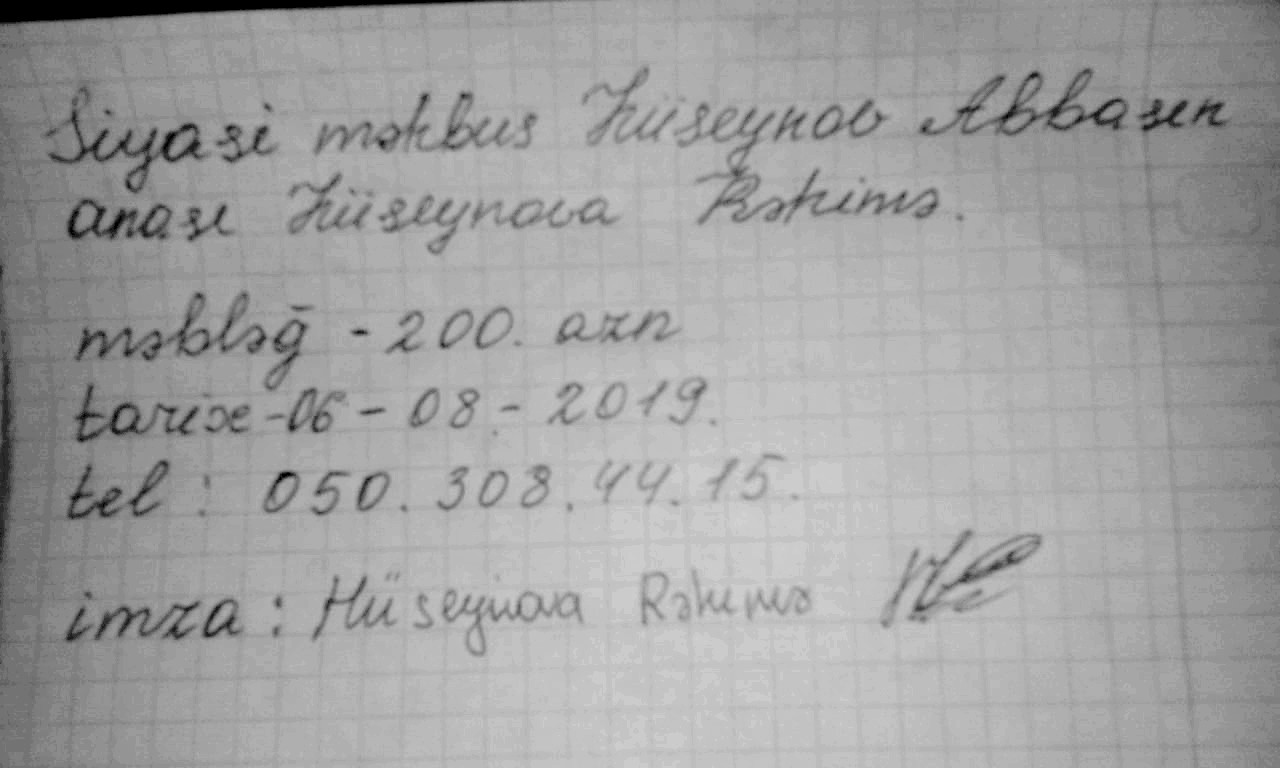 Siyasi məhbus Hüseynov Abbasın
anası Hüseynova Rəhimə.
məbləğ - 200. azn
tarix - 06 - 08 - 2019.
tel : 050. 308. 44. 15.
imza : Hüseynova Rəhimə